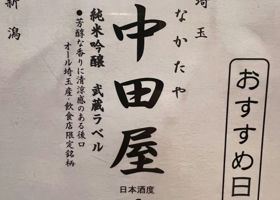 おすすめ日
埼玉
なかたや
中田屋
日本酒度
純米吟醸 武蔵ラベル
●芳醇な香りに清涼感のある後口
オール埼玉産・飲食店限定銘柄
新潟